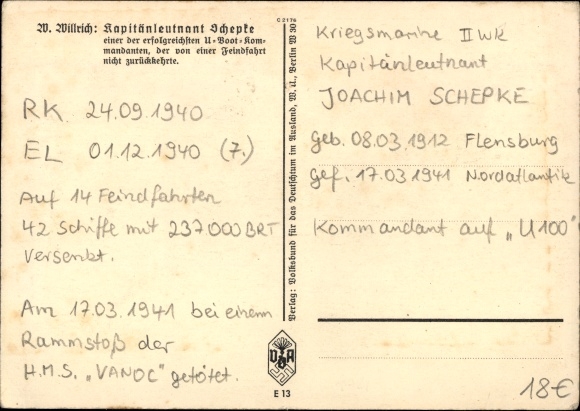 C 2176
W. Willrich: Kapitänleutnant Schepke
einer der erfolgreichsten U-Boot-Kom-
mandanten, der von einer Feindfahrt
nicht zurückkehrte.
RK 24.09.1940
EL 01.12.1940 (7.)
Auf 14 Feindfahrten
42 Schiffe mit 237000 BRT
versenkt.
Am 17.03.1941 bei einem
Rammstoß der
H.M.S. „VANOC" getötet.
Verlag: Volksbund für das Deutschtum im Ausland, W. U., Berlin W 30
VDA
E 13
Kriegsmarine II WK
Kapitänleutnant
JOACHIM SCHEPKE
geb. 08.03.1912 Flensburg
gef. 17.03.1941 Nordatlantik
Kommandant auf „U 100"
18€